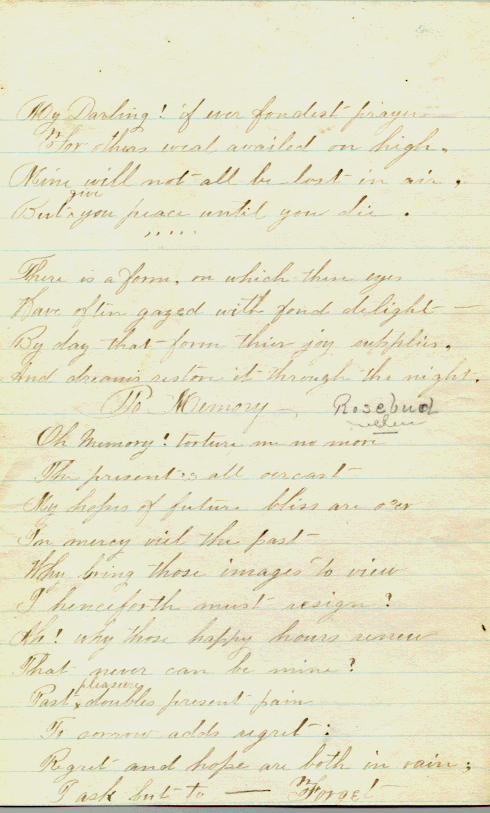 My Darling! if ever fondest prayer
For others weal availed on high,
Mine will not all be lost in air,
But give you peace until you die.
There is a form, on which these eyes
Have often gazed with fond delight —
By day that form thier joy supplies,
And dreams restore it through the night.
To Memory — Rosebud
Oh Memory! torture me no more
The present is all overcast
My hopes of future bliss are o'er
In mercy viel the past
Why bring those images to view
I henceforth must resign?
Ah! why those happy hours renew
That never can be mine?
Past pleasure doubles present pain
To sorrow adds regret:
Regret and hope are both in vain;
I ask but to — Forget